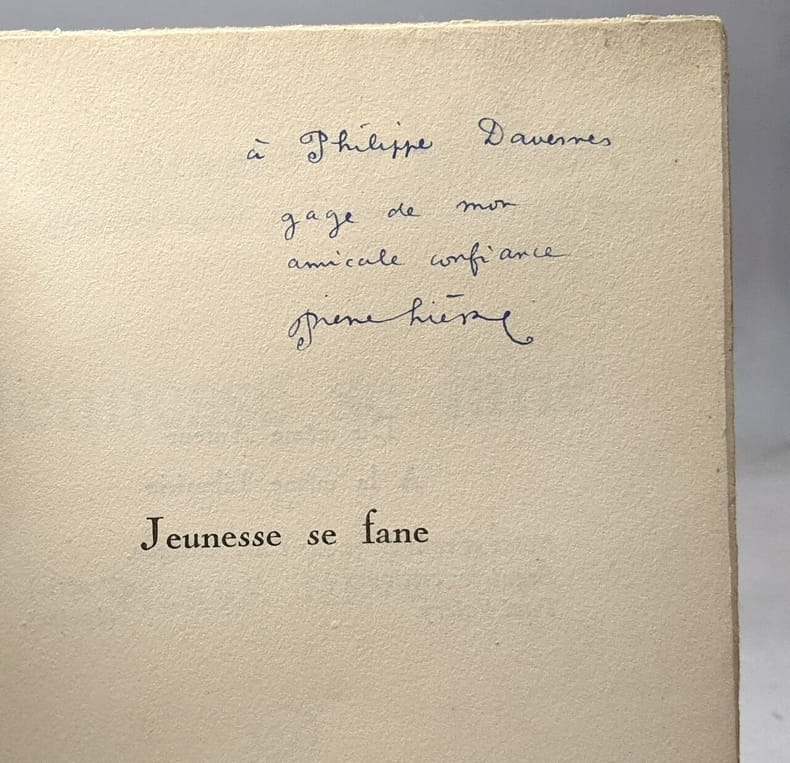 à Philippe Davernes
gage de mon
amicale confiance
Jeunesse se fane